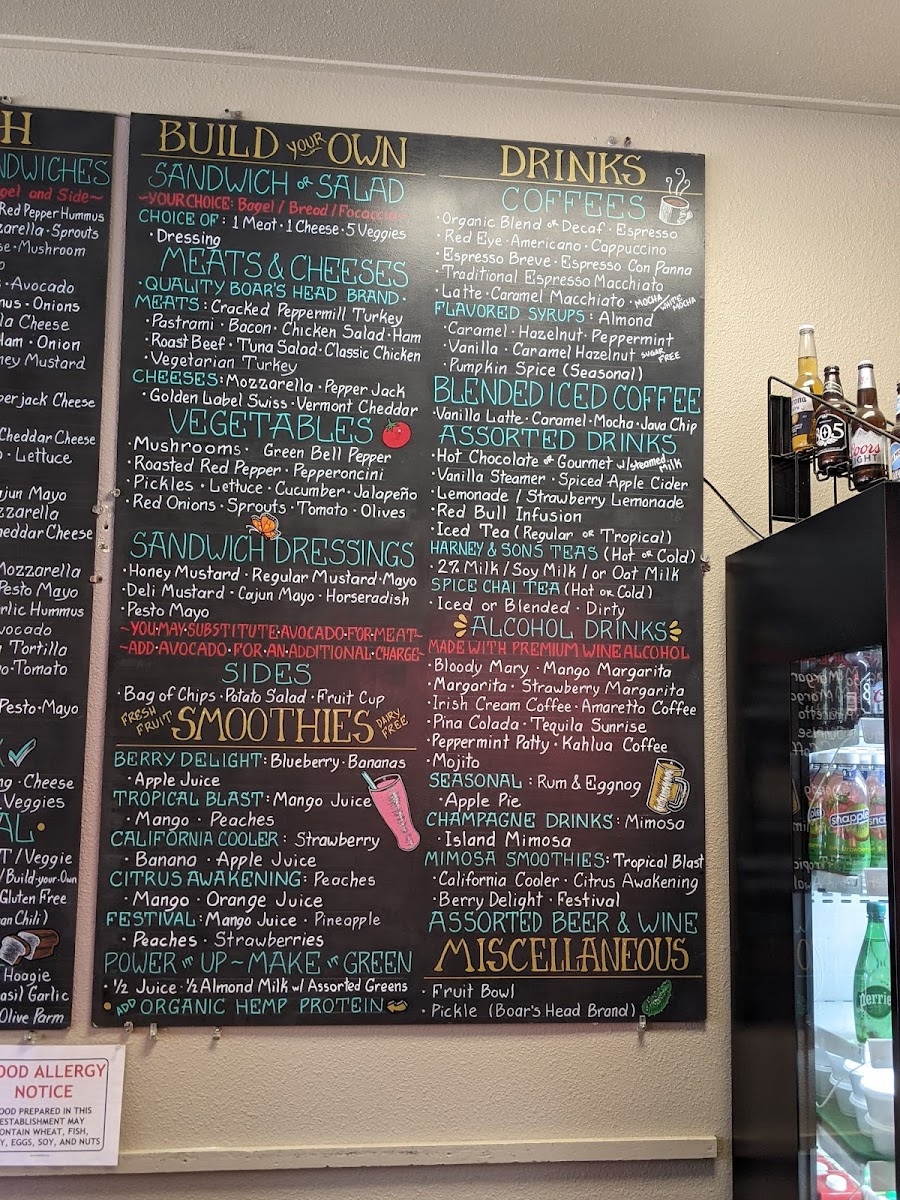 H
NDWICHES
gel and Side~
Red Pepper Hummus
zarella · Sprouts
se · Mushroom
o
· Avocado
mus · Onions
la Cheese
Ham · Onion
ney Mustard
perjack Cheese
Cheddar Cheese
o · Lettuce
ajun Mayo
zzarella
heddar Cheese
Mozzarella
Pesto Mayo
arlic Hummus
vocado
Tortilla
o · Tomato
Pesto · Mayo
ng · Cheese
Veggies
AL ·
T / Veggie
/ Build-your-Own
Gluten Free
an Chili)
Hoagie
asil Garlic
Olive Parm
BUILD YOUR OWN
SANDWICH or SALAD
~YOUR CHOICE: Bagel / Bread / Focaccia~
CHOICE OF: 1 Meat · 1 Cheese · 5 Veggies
· Dressing
MEATS & CHEESES
· QUALITY BOAR'S HEAD BRAND ·
MEATS: Cracked Peppermill Turkey
· Pastrami · Bacon · Chicken Salad · Ham
· Roast Beef · Tuna Salad · Classic Chicken
· Vegetarian Turkey
CHEESES: Mozzarella · Pepper Jack
· Golden Label Swiss · Vermont Cheddar
VEGETABLES
· Mushrooms · Green Bell Pepper
· Roasted Red Pepper · Pepperoncini
· Pickles · Lettuce · Cucumber · Jalapeño
· Red Onions · Sprouts · Tomato · Olives
SANDWICH DRESSINGS
· Honey Mustard · Regular Mustard · Mayo
· Deli Mustard · Cajun Mayo · Horseradish
· Pesto Mayo
~YOU MAY SUBSTITUTE AVOCADO FOR MEAT~
~ADD AVOCADO FOR AN ADDITIONAL CHARGE~
SIDES
· Bag of Chips · Potato Salad · Fruit Cup
FRESH FRUIT SMOOTHIES DAIRY FREE
BERRY DELIGHT: Blueberry · Bananas
· Apple Juice
TROPICAL BLAST: Mango Juice
· Mango · Peaches
CALIFORNIA COOLER: Strawberry
· Banana · Apple Juice
CITRUS AWAKENING: Peaches
· Mango · Orange Juice
FESTIVAL: Mango Juice · Pineapple
· Peaches · Strawberries
POWER IT UP ~ MAKE IT GREEN
· ½ Juice · ½ Almond Milk w/ Assorted Greens
· ADD ORGANIC HEMP PROTEIN
DRINKS
COFFEES
· Organic Blend or Decaf · Espresso
· Red Eye · Americano · Cappuccino
· Espresso Breve · Espresso Con Panna
· Traditional Espresso Macchiato
· Latte · Caramel Macchiato · MOCHA / WHITE MOCHA
FLAVORED SYRUPS: Almond
· Caramel · Hazelnut · Peppermint
· Vanilla · Caramel Hazelnut SUGAR FREE
· Pumpkin Spice (Seasonal)
BLENDED ICED COFFEE
· Vanilla Latte · Caramel · Mocha · Java Chip
ASSORTED DRINKS
· Hot Chocolate or Gourmet w/ steamed milk
· Vanilla Steamer · Spiced Apple Cider
· Lemonade / Strawberry Lemonade
· Red Bull Infusion
· Iced Tea (Regular or Tropical)
HARNEY & SONS TEAS (Hot or Cold)
· 2% Milk / Soy Milk / or Oat Milk
SPICE CHAI TEA (Hot or Cold)
· Iced or Blended · Dirty
ALCOHOL DRINKS
MADE WITH PREMIUM WINE ALCOHOL
· Bloody Mary · Mango Margarita
· Margarita · Strawberry Margarita
· Irish Cream Coffee · Amaretto Coffee
· Pina Colada · Tequila Sunrise
· Peppermint Patty · Kahlua Coffee
· Mojito
SEASONAL: Rum & Eggnog
· Apple Pie
CHAMPAGNE DRINKS: Mimosa
· Island Mimosa
MIMOSA SMOOTHIES: Tropical Blast
· California Cooler · Citrus Awakening
· Berry Delight · Festival
ASSORTED BEER & WINE
MISCELLANEOUS
· Fruit Bowl
· Pickle (Boar's Head Brand)
OOD ALLERGY
NOTICE
OOD PREPARED IN THIS
ESTABLISHMENT MAY
ONTAIN WHEAT, FISH,
Y, EGGS, SOY, AND NUTS
805
Coors
IGHT
Snapple
Perrie